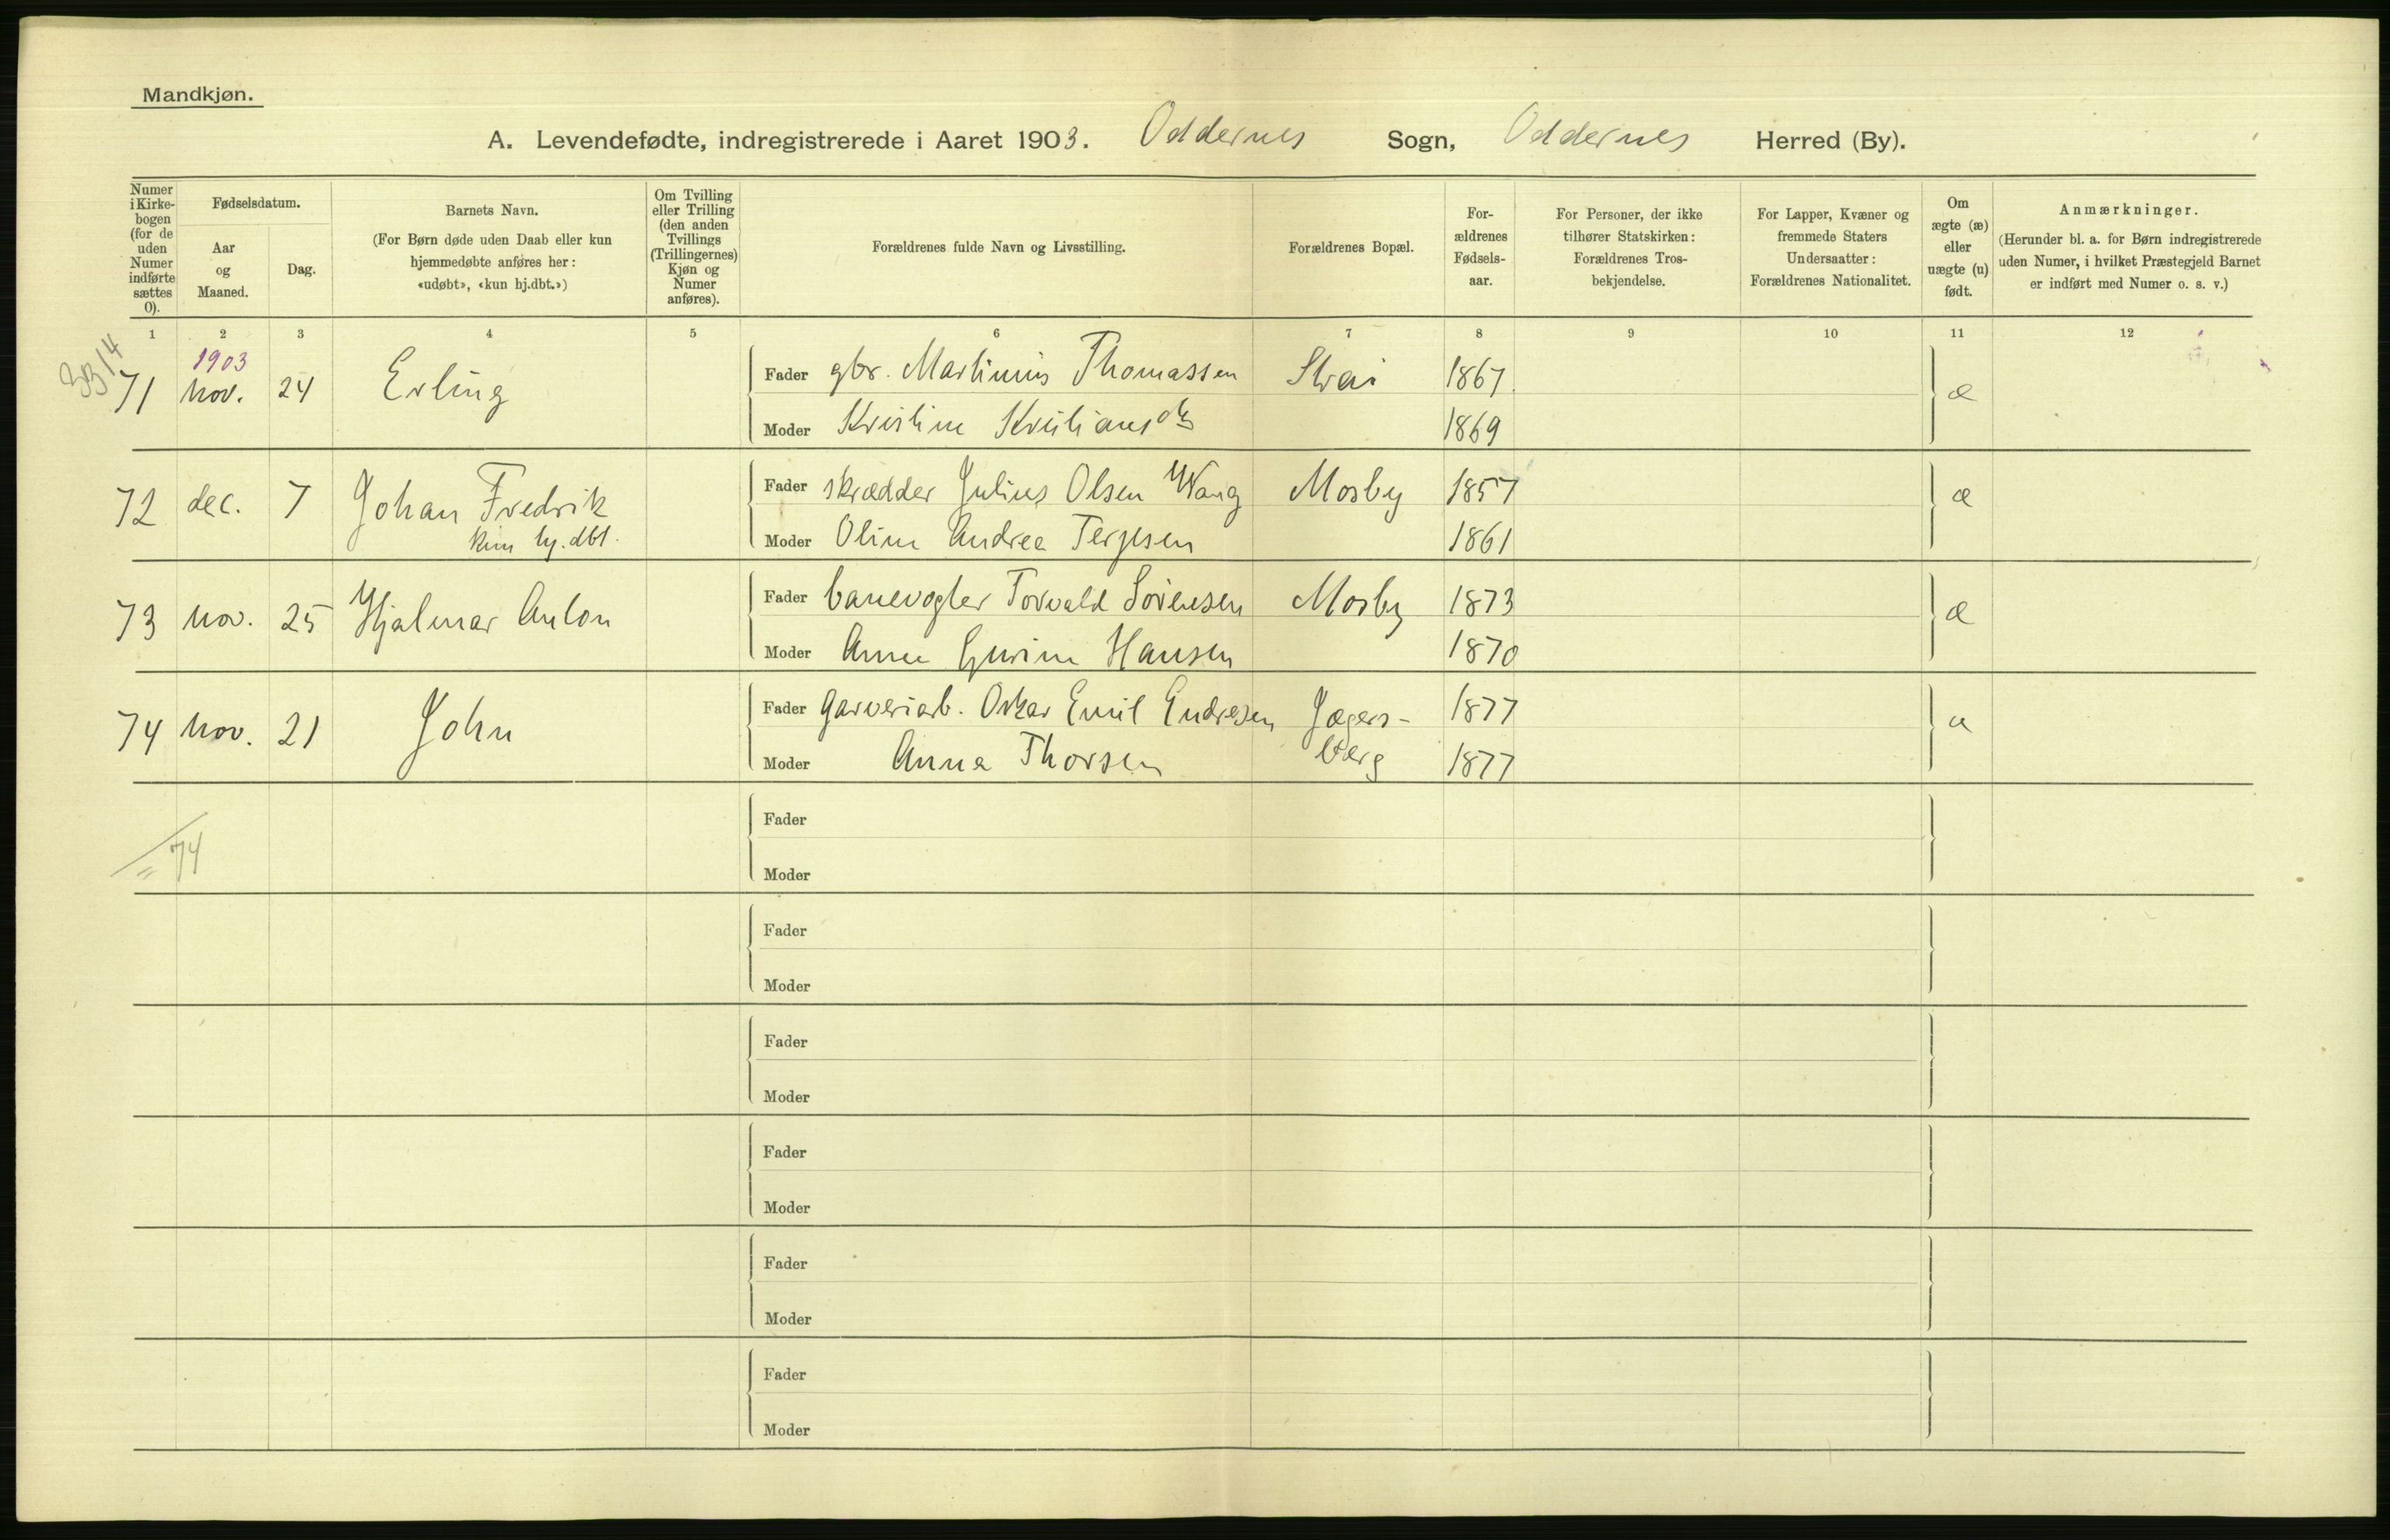 Mandkjøn.
A. Levendefødte, indregistrerede i Aaret 1903. Oddernes Sogn, Oddernes Herred (By).
Numer i Kirke-bogen (for de uden Numer indførte sættes 0).
Fødselsdatum.
Aar og Maaned.
Dag.
Barnets Navn.
(For Børn døde uden Daab eller kun hjemmedøbte anføres her: «udøbt», «kun hj.dbt.»)
Om Tvilling eller Trilling (den anden Tvillings (Trillingernes) Kjøn og Numer anføres).
Forældrenes fulde Navn og Livsstilling.
Forældrenes Bopæl.
For-ældrenes Fødsels-aar.
For Personer, der ikke tilhører Statskirken: Forældrenes Tros-bekjendelse.
For Lapper, Kvæner og fremmede Staters Undersaatter: Forældrenes Nationalitet.
Om ægte (æ) eller uægte (u) født.
Anmærkninger.
(Herunder bl. a. for Børn indregistrerede uden Numer, i hvilket Præstegjeld Barnet er indført med Numer o. s. v.)
1 2 3 4 5 6 7 8 9 10 11 12
3314
1903
71 nov. 24 Erling Fader gbr. Martinius Thomassen Strai 1867 æ
Moder Kristine Kristiansdtr 1869
72 dec. 7 Johan Fredrik Fader skrædder Julius Olsen Wang Mosby 1857 æ
kun hj.dbt. Moder Oline Andrea Terjesen 1861
73 nov. 25 Hjalmar Anton Fader banevogter Torvald Sørensen Mosby 1873 æ
Moder Anne Gurine Hansen 1870
74 nov. 21 John Fader garveriarb. Oskar Emil Endresen Jægers- 1877 u
Moder Anna Thorsen berg 1877
Fader
= 74
Moder
Fader
Moder
Fader
Moder
Fader
Moder
Fader
Moder
Fader
Moder